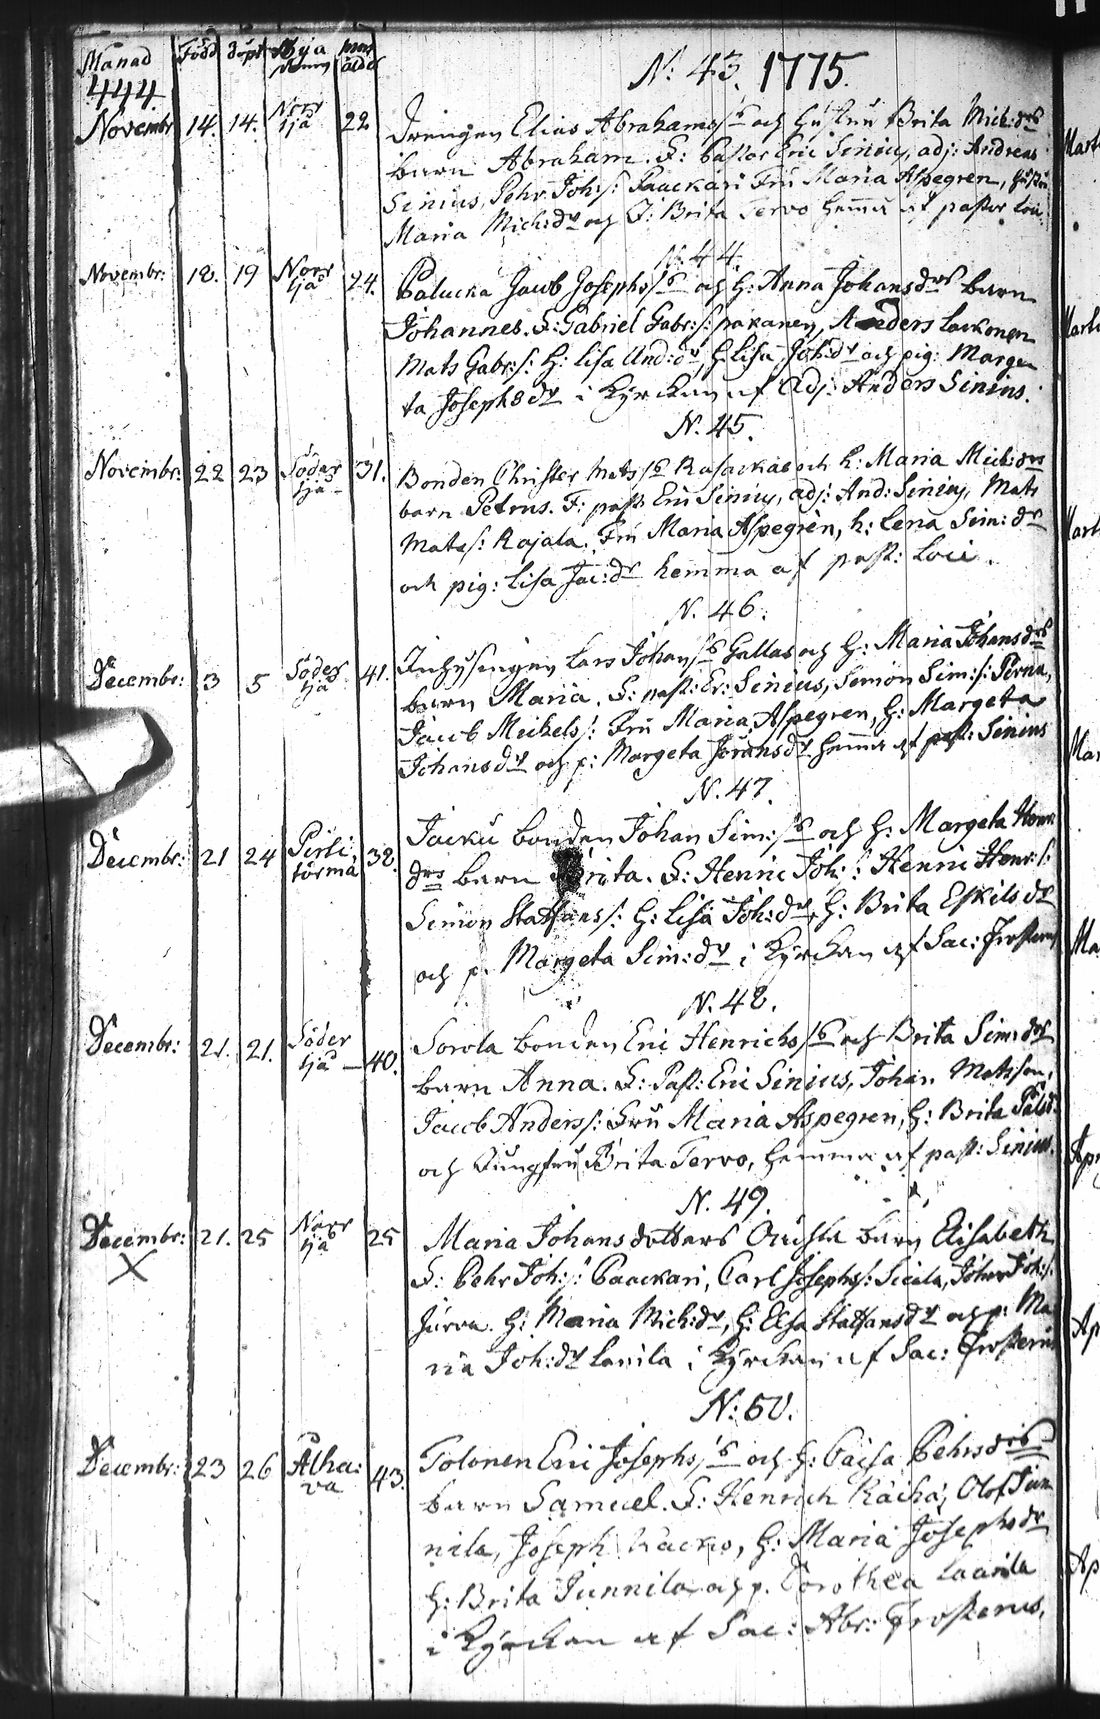 Månad Född Döpt Bya namn mors ålder
444
N: 43. 1775.
Novembr 14. 14. Norr sjå 22 Drengen Elias Abrahams/s och Hustru Brita Mich:drs
barn Abraham. F: Pastor Eric Sinius, adj: Andreas
Sinius, Pehr Joh:s/: Paackari Fru Maria Aspegren, Hustru
Maria Mich:dr och J: Brita Tervo hemma af pastor Loci
N. 44.
Novembr: 18. 19 Norr sjå 24. Palucka Jacob Josephs/s och H: Anna Johansdrs barn
Johannes. F: Gabriel Gabr:s/: pakanen, Anders Lackonen
Mats Gabr:s/: H: Lisa And:dr, H: Lisa Joh:dr och pig: Marge
ta Josephsdr i Kyrckan af Adj: Anders Sinius.
N. 45.
Novembr: 22 23 Söder sjå 31. Bonden Christer Mats/s Rasackas och h: Maria Mich:drs
barn Petrus. F: past: Eric Sinius, adj: And: Sinius, Mats
Mats/: Rajala. Fru Maria Aspegren, h: Lena Sim:dr
och pig: Lisa Jac:dr hemma af past: Loci.
N. 46.
Decembr: 3 5 Söder sjå 41. Inhysingen Lars Johans/s Gallas och H: Maria Johansdrs
barn Maria. F: past: Er: Sinius, Simon Sim:s/: Perna,
Jacob Mickels/: Fru Maria Aspegren, H: Margeta
Johansdr och p: Margeta Joransdr hemma af past: Sinius
N. 47.
Decembr: 21 24 Pirti törmä 38. Jacku bonden Johan Sim:/s och H: Margeta Henr:
drs barn Brita. F: Henric Joh:/: Henric Henr:/:
Simon Staffans/: H: Lisa Joh:dr, H: Brita Eskilsdr
och p. Margeta Sim:dr i Kyrckan af Sac: Frosterus
N. 48.
Decembr: 21. 21. Söder sjå 40. Sorola bonden Eric Henrichs/s och Brita Sim:drs
barn Anna. F: Past: Eric Sinius, Johan Matsson,
Jacob Anders/: Fru Maria Aspegren, H: Brita Pålsd:
och Jungfru Brita Tervo, hemma af past: Sinius.
N. 49.
Decembr: 21. 25 Norr sjå 25 Maria Johansdotters Oächta barn Elisabeth
X F: Pehr Joh:/: Paackari, Carl Josephs/: Sicala, Johan Joh:/:
Jurva. H: Maria Mich:dr, H: Elsa Staffansdr och p: Ma
ria Joh:dr Lanila i Kyrckan af Sac: Frosterus
N: 50.
Decembr: 23 26 Alha: va 43. Tolonen Eric Josephs/s och H: Caisa Pehrsdrs
barn Samuel. F: Henrich Rächä, Olof Jun
nila, Joseph Kacko, H: Maria Josephsdr
H: Brita Junnila och p. Dorothea Laanila
i Kyrckan af Sac: Abr: Frosterus.